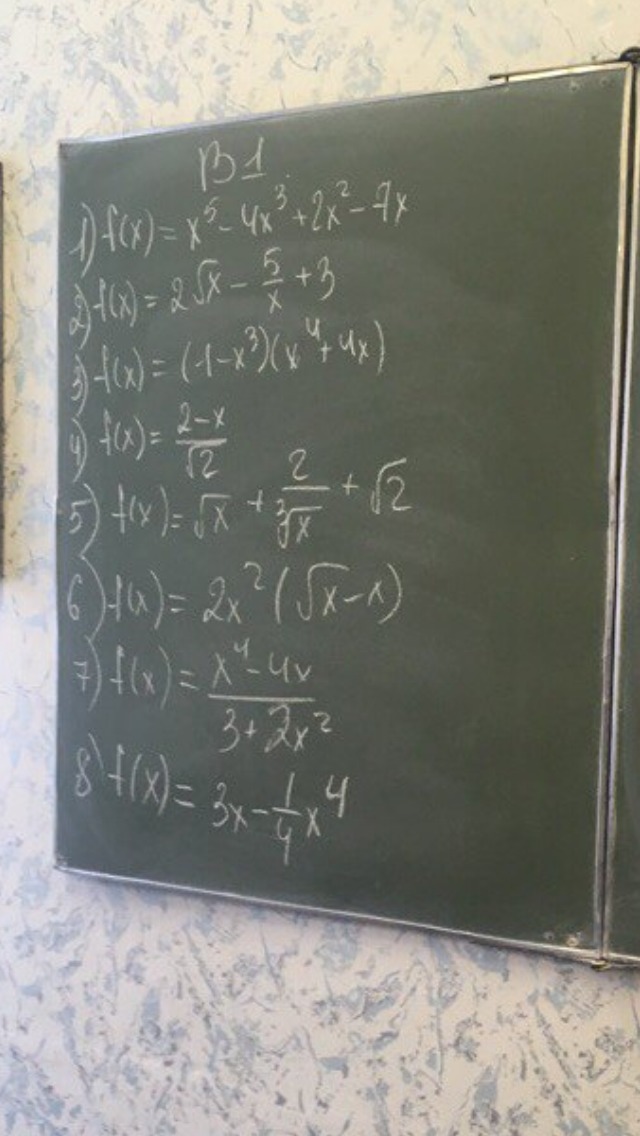 B1.
1) f(x) = x⁵ - 4x³ + 2x² - 7x
2) f(x) = 2√x - 5/x + 3
3) f(x) = (-1-x³)(x⁴+4x)
4) f(x) = (2-x)/√2
5) f(x) = √x + 2/∛x + √2
6) f(x) = 2x²(√x - x)
7) f(x) = (x⁴-4x)/(3+2x²)
8) f(x) = 3x - 1/4 x⁴